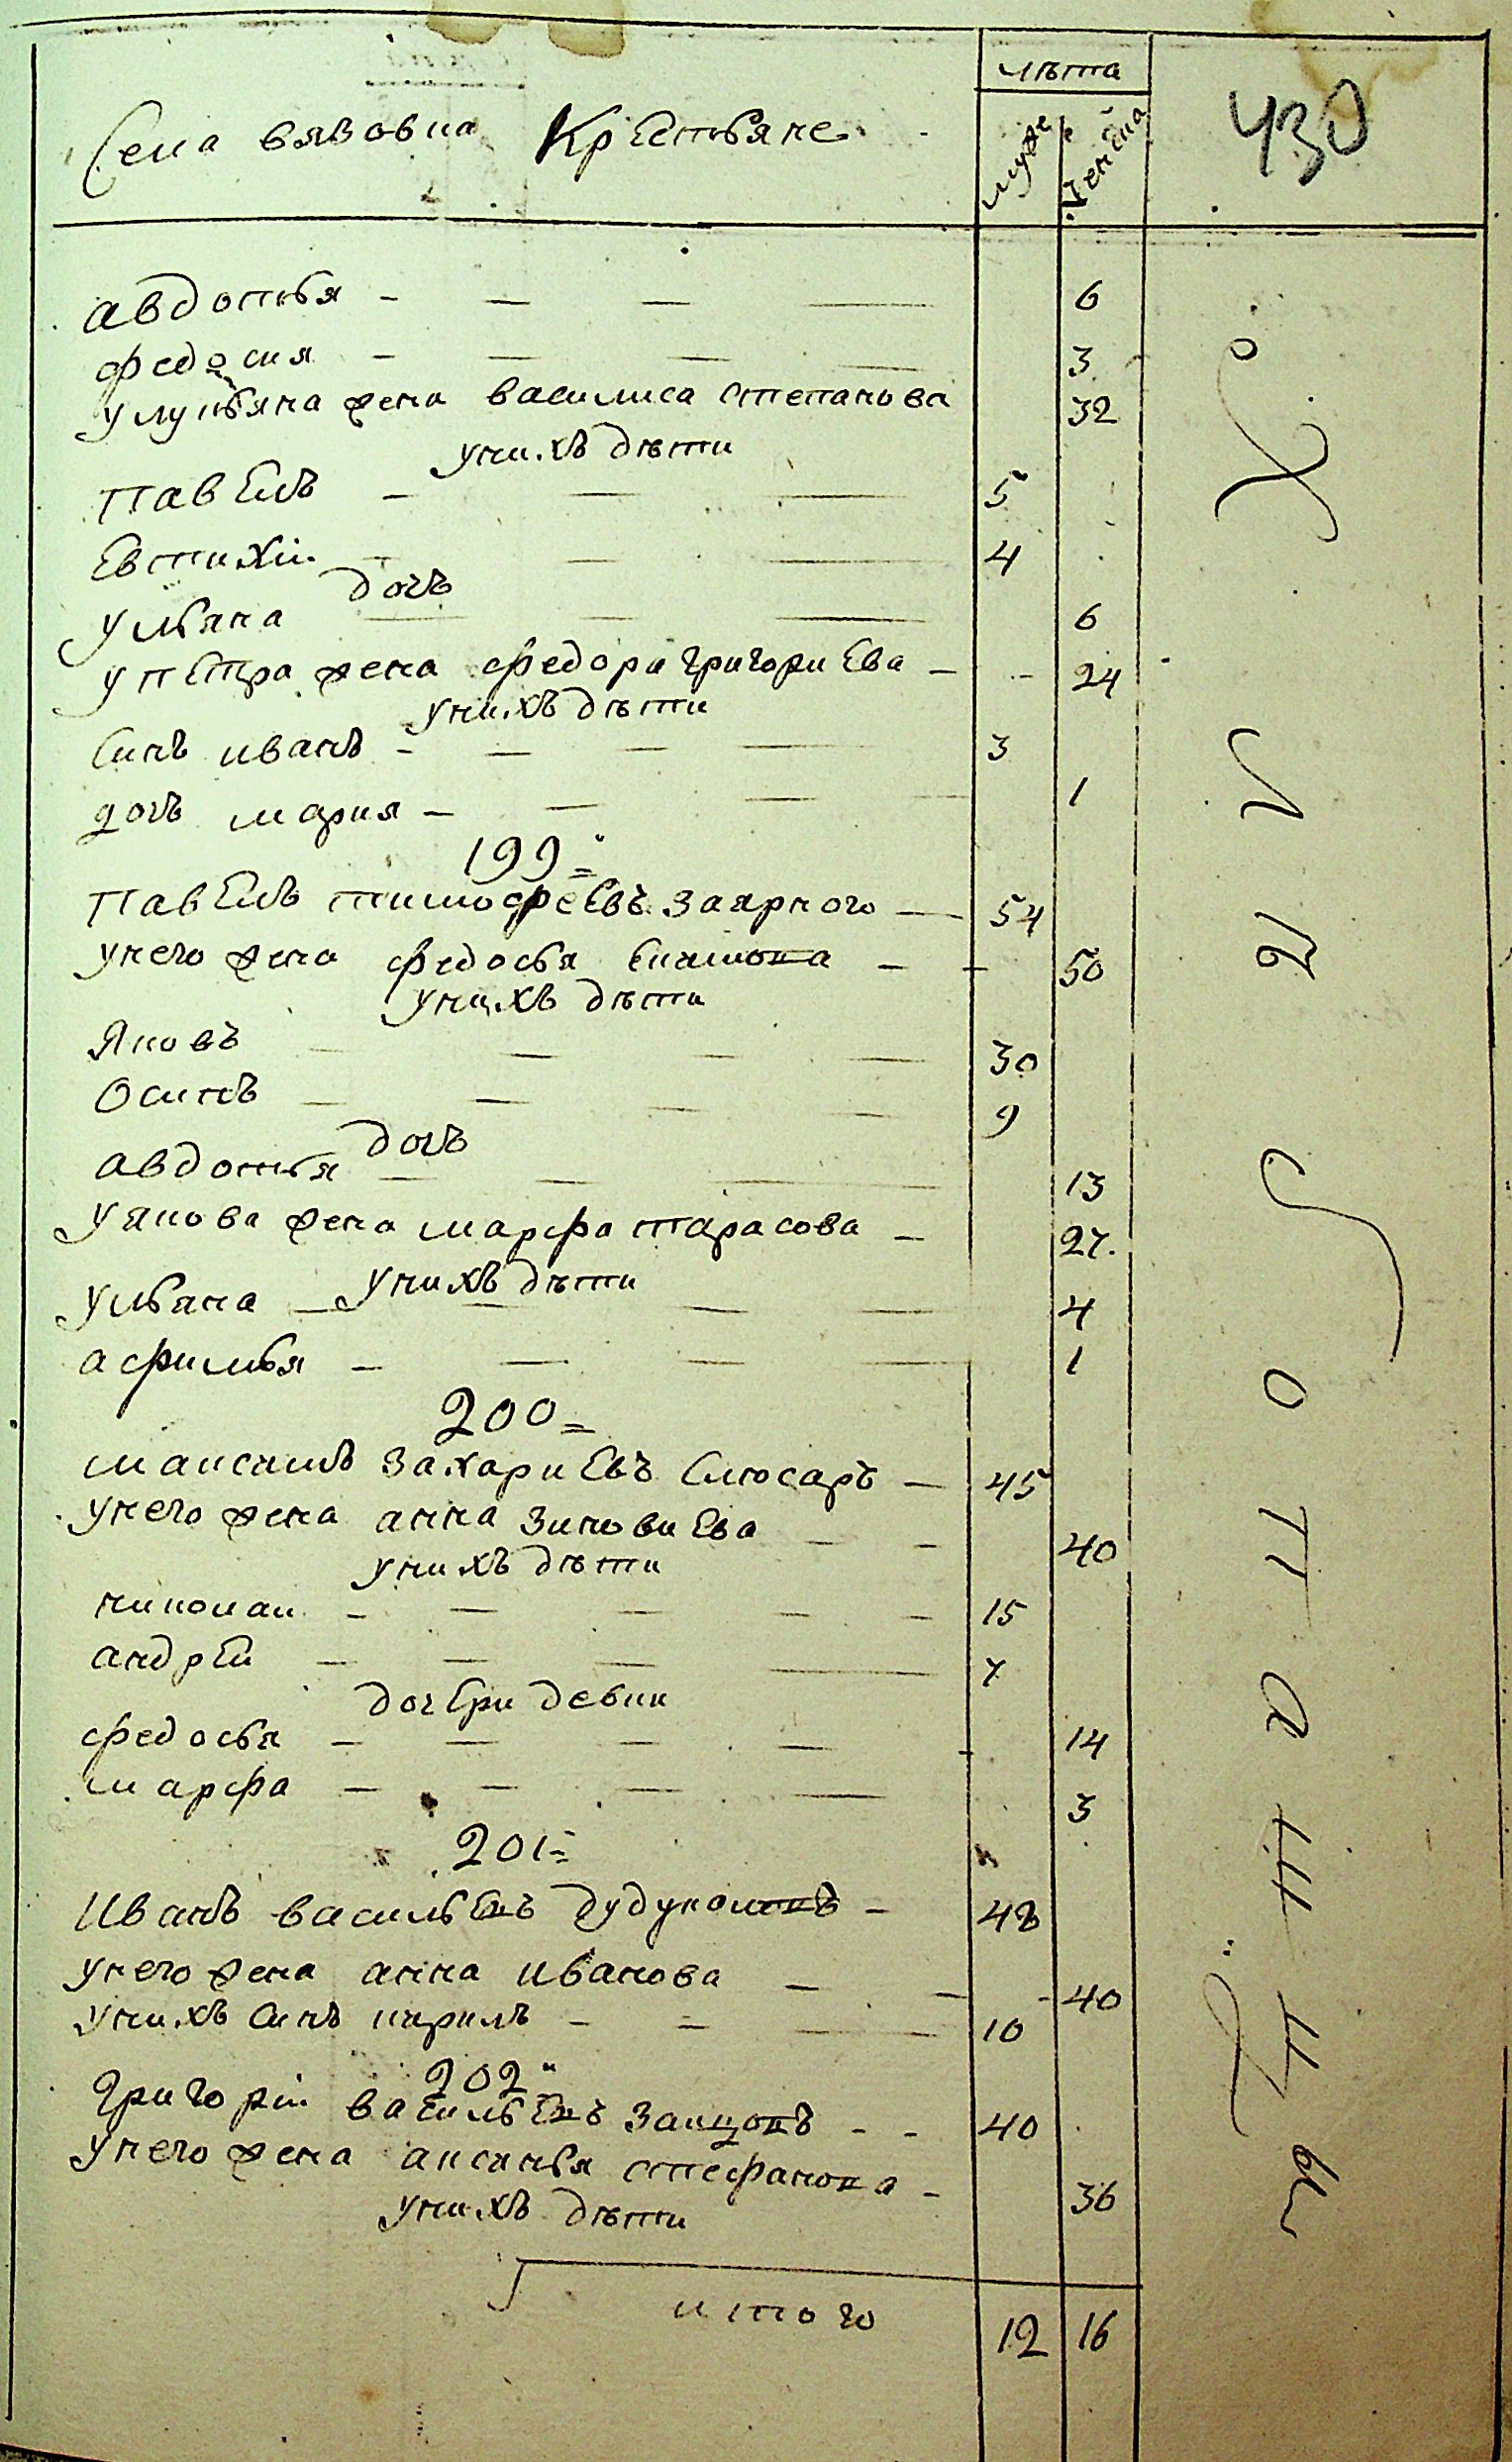 лѣта
430
Села вязовка Крестьяне
мужск женска
авдотья 6
федосия 3
у лукьяна жена василиса степанова 32
у них дѣти
павелъ 5
Евтихiи 4
дочь
ульяна 6
у пЕтра жена федора григориЕва 24
у нихъ дѣти
Синъ иванъ 3
дочь мария 1
199
павЕлъ тимофѣЕвъ заярного 54
у него жена федосья 50
у нихъ дѣти
Яковъ 30
Осипъ 9
дочь
авдотья 13
у якова жена марфа тарасова 27
у нихъ дѣти
ульяна 4
афимья 1
200
максимъ захариЕвъ слюсаръ 45
у него жена анна зиновиЕва 40
у нихъ дѣти
николаи 15
андрЕи 7
дочЕри девки
федосья 14
марфа 3
201
Иванъ васильЕвъ 48
у него жена анна иванова 40
у нихъ синъ кирилъ 10
202
григорiи васильЕвъ 40
у него жена аксинья стефанова 36
у нихъ дѣти
итого 12 16